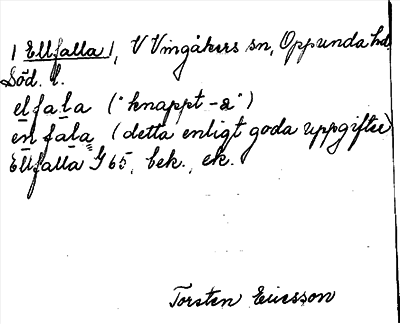 | Ellfalla |, V Vingåkers sn, Oppunda hd,
Söd. l.
elfala ("knappt -a")
en fala (detta enligt goda uppgifter)
Ellfalla G 65, bek., ek.
Torsten Ericsson